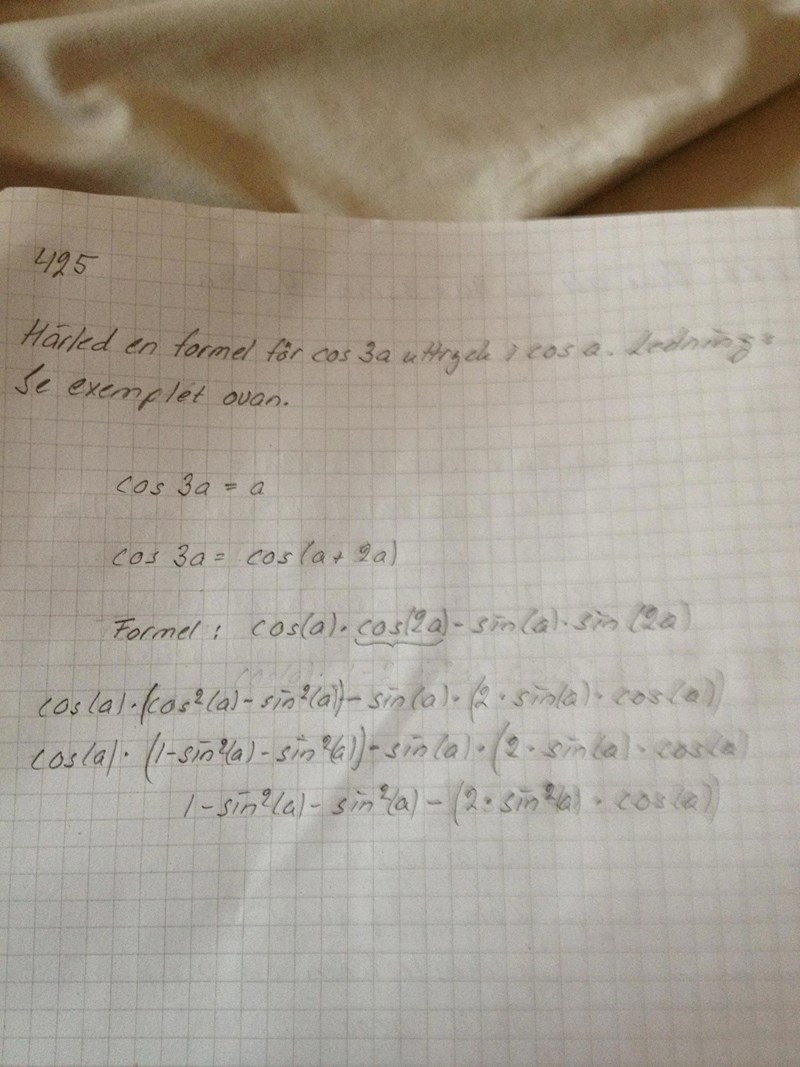 425
Härled en formel för cos 3a uttryck i cos a. Ledning:
Se exemplet ovan.
cos 3a = a
cos 3a = cos(a + 2a)
Formel: cos(a) · cos(2a) - sin(a) · sin(2a)
cos(a) · (cos²(a) - sin²(a)) - sin(a) · (2 · sin(a) · cos(a))
cos(a) · (1 - sin²(a) - sin²(a)) - sin(a) · (2 · sin(a) · cos(a)
1 - sin²(a) - sin²(a) - (2 · sin²(a) · cos(a))